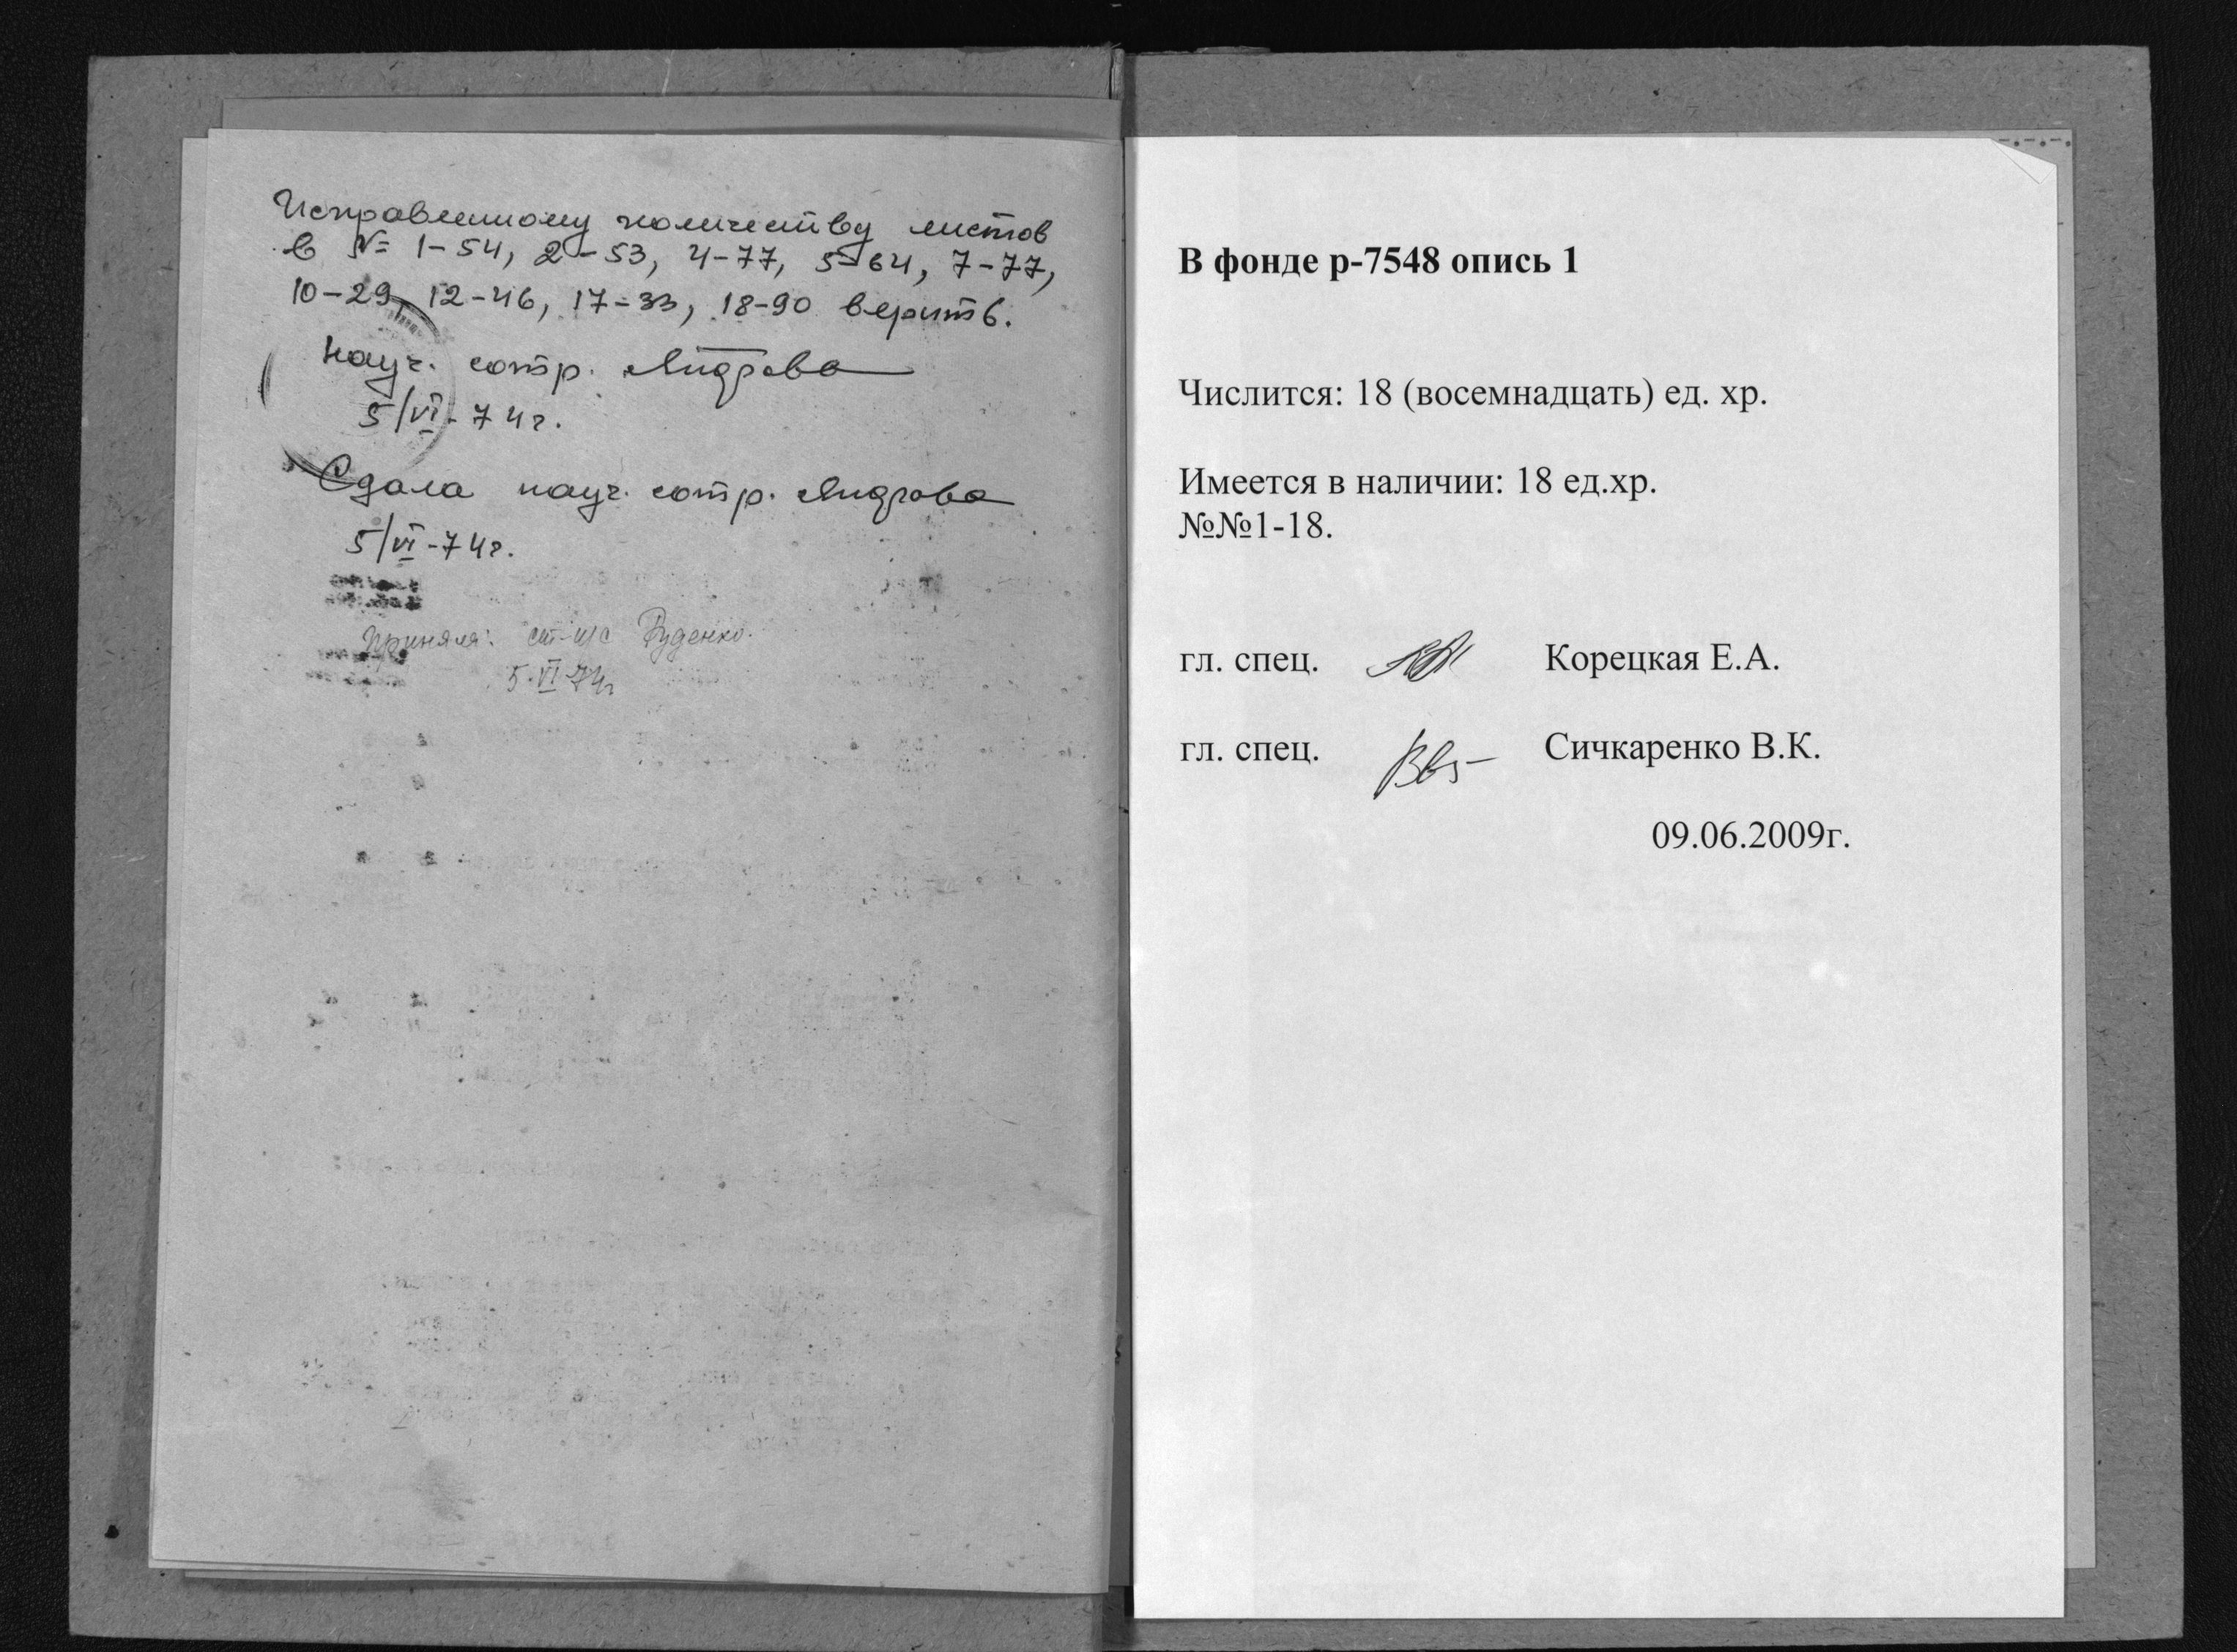 Исправленному количеству листов
в № 1-54, 2-53, 4-77, 5-64, 7-77,
10-29, 12-46, 17-33, 18-90 верить.
Науч. сотр.
5/VI-74г.
Сдала науч. сотр.
5/VI-74г.
Приняла: ст. н/с Руденко.
5.VI-74г
В фонде р-7548 опись 1
Числится: 18 (восемнадцать) ед. хр.
Имеется в наличии: 18 ед.хр.
№№1-18.
гл. спец. Корецкая Е.А.
гл. спец. Сичкаренко В.К.
09.06.2009г.